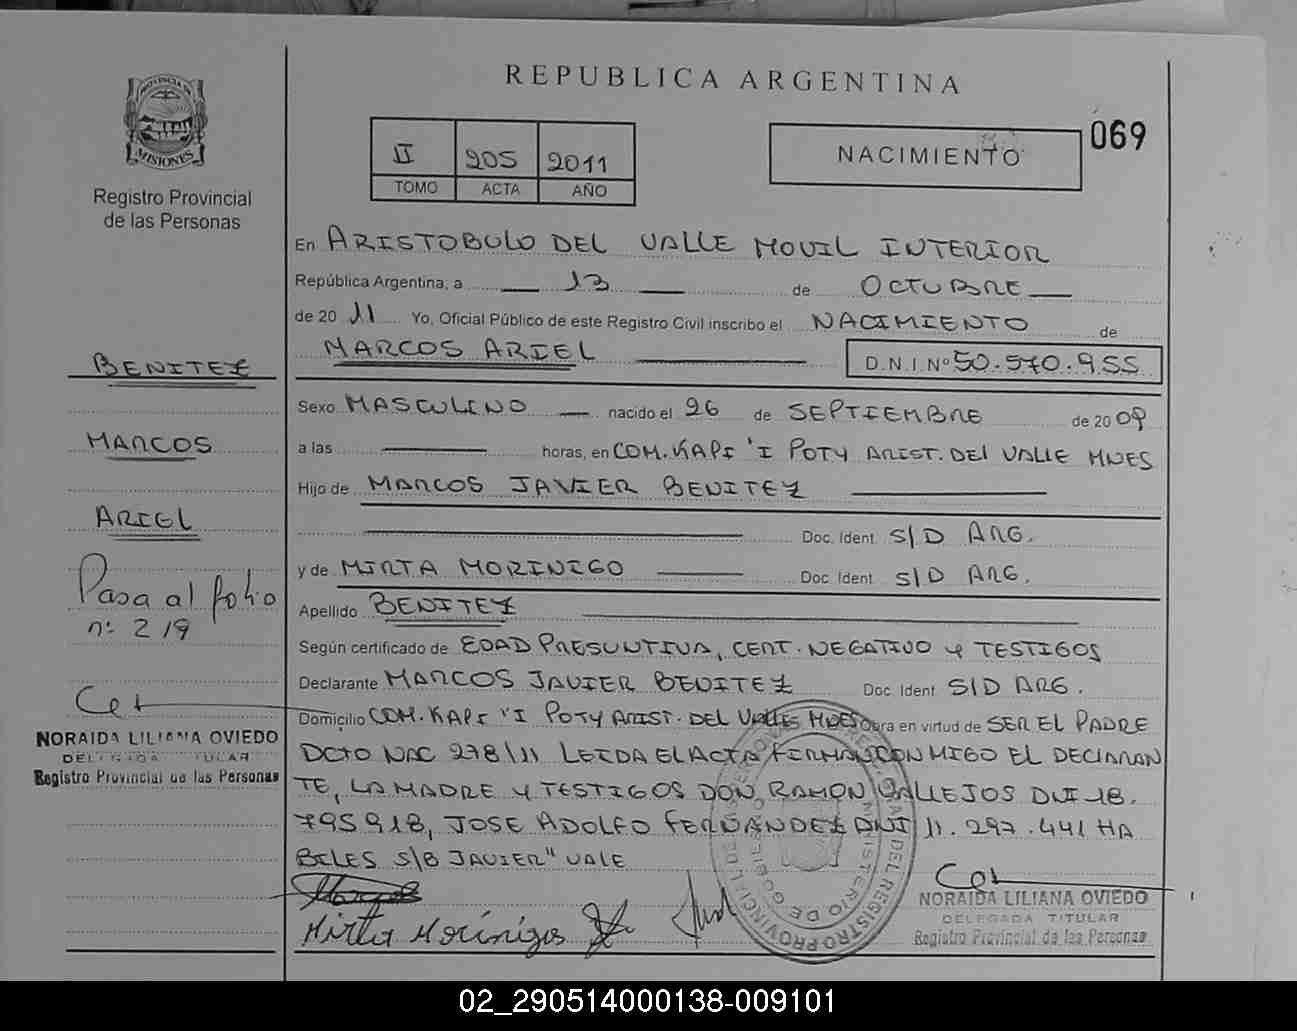 REPUBLICA ARGENTINA
PROVINCIA DE
MISIONES
Registro Provincial
de las Personas
II 205 2011
TOMO ACTA AÑO
NACIMIENTO
069
En ARISTOBULO DEL VALLE MOVIL INTERIOR
República Argentina, a 13 de OCTUBRE
de 20 11 Yo, Oficial Público de este Registro Civil inscribo el NACIMIENTO de
MARCOS ARIEL D.N.I. Nº 50.570.955
Sexo MASCULINO nacido el 26 de SEPTIEMBRE de 20 09
a las horas, en COM. KAPI 'I POTY ARIST. DEL VALLE MNES
Hijo de MARCOS JAVIER BENITEZ
Doc. Ident. S/D ARG.
y de MIRTA MORINIGO Doc. Ident. S/D ARG.
Apellido BENITEZ
Según certificado de EDAD PRESUNTIVA, CERT. NEGATIVO Y TESTIGOS
Declarante MARCOS JAVIER BENITEZ Doc. Ident. S/D ARG.
Domicilio COM. KAPI "I POTY ARIST. DEL VALLES MNES Obra en virtud de SER EL PADRE
DCTO NAC 278/11 LEIDA EL ACTA FIRMAN CON MIGO EL DECLARAN
TE, LA MADRE Y TESTIGOS DON RAMON VALLEJOS DNI 18.
795918, JOSE ADOLFO FERNANDEZ DNI 11.297.441 HA
BILES S/B JAVIER" VALE
Mirta Morínigo
BENITEZ
MARCOS
ARIEL
Pasa al folio
nº 219
NORAIDA LILIANA OVIEDO
DELEGADA TITULAR
Registro Provincial de las Personas
NORAIDA LILIANA OVIEDO
DELEGADA TITULAR
Registro Provincial de las Personas
MINISTERIO DE GOBIERNO
02_290514000138-009101